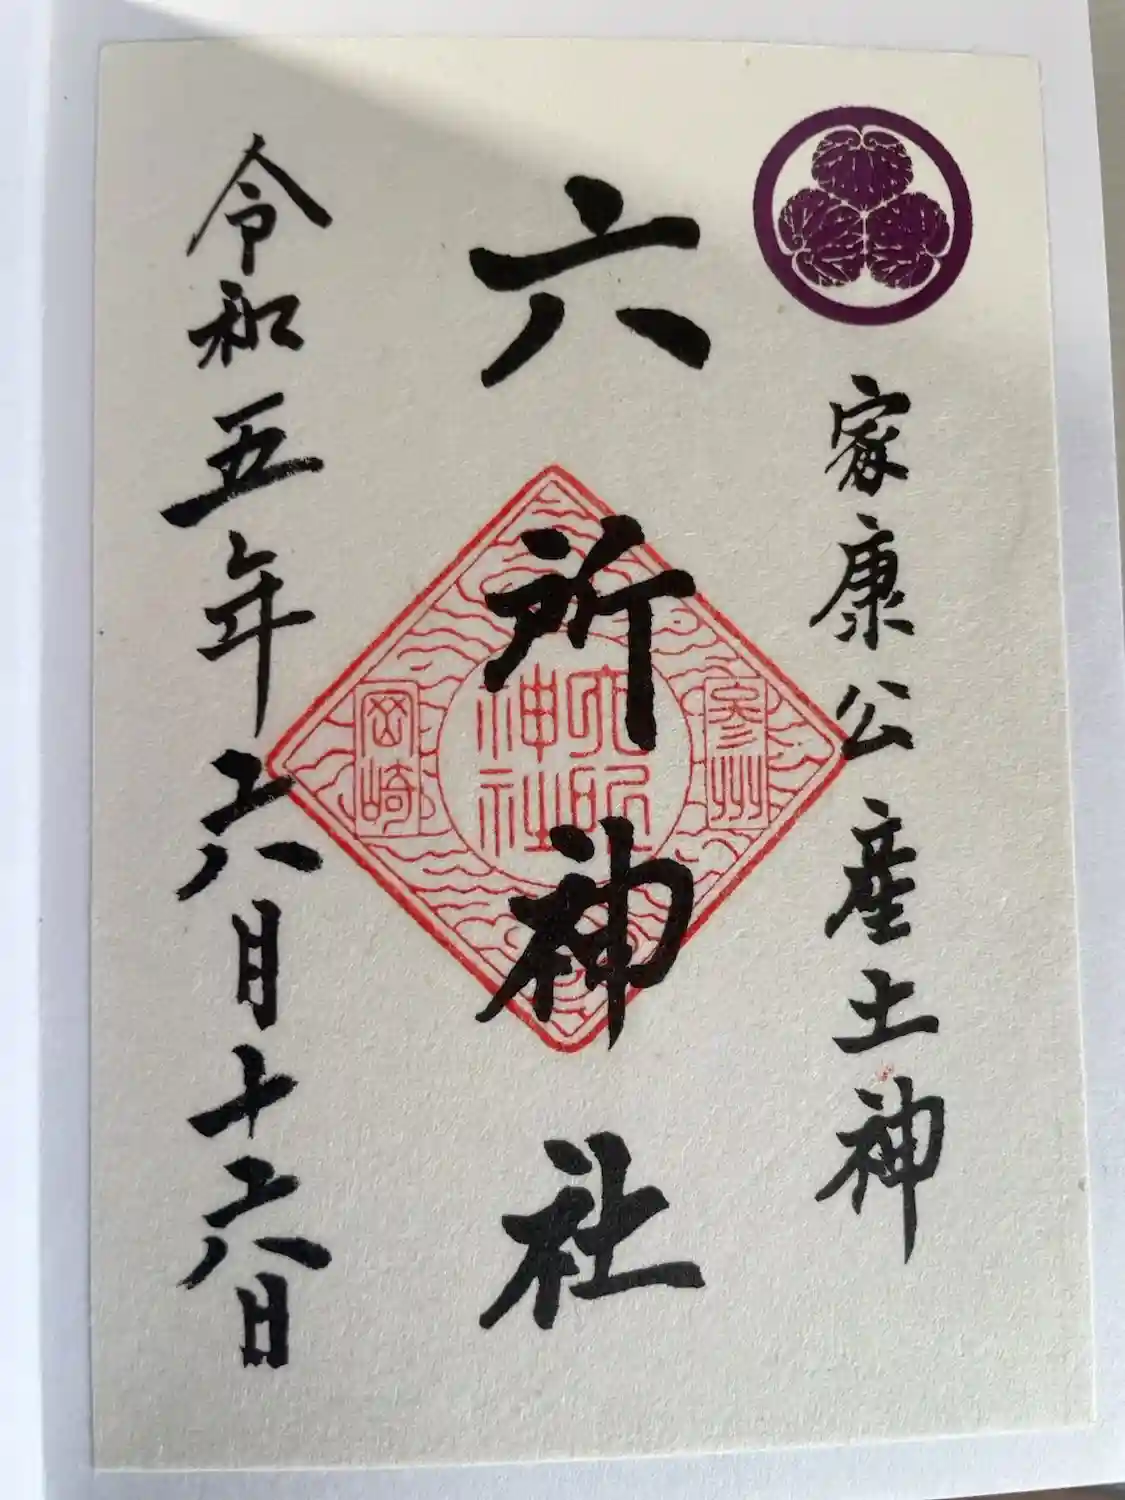 家康公産土神
六所神社
令和五年六月十六日
參州
六所
神社
岡崎